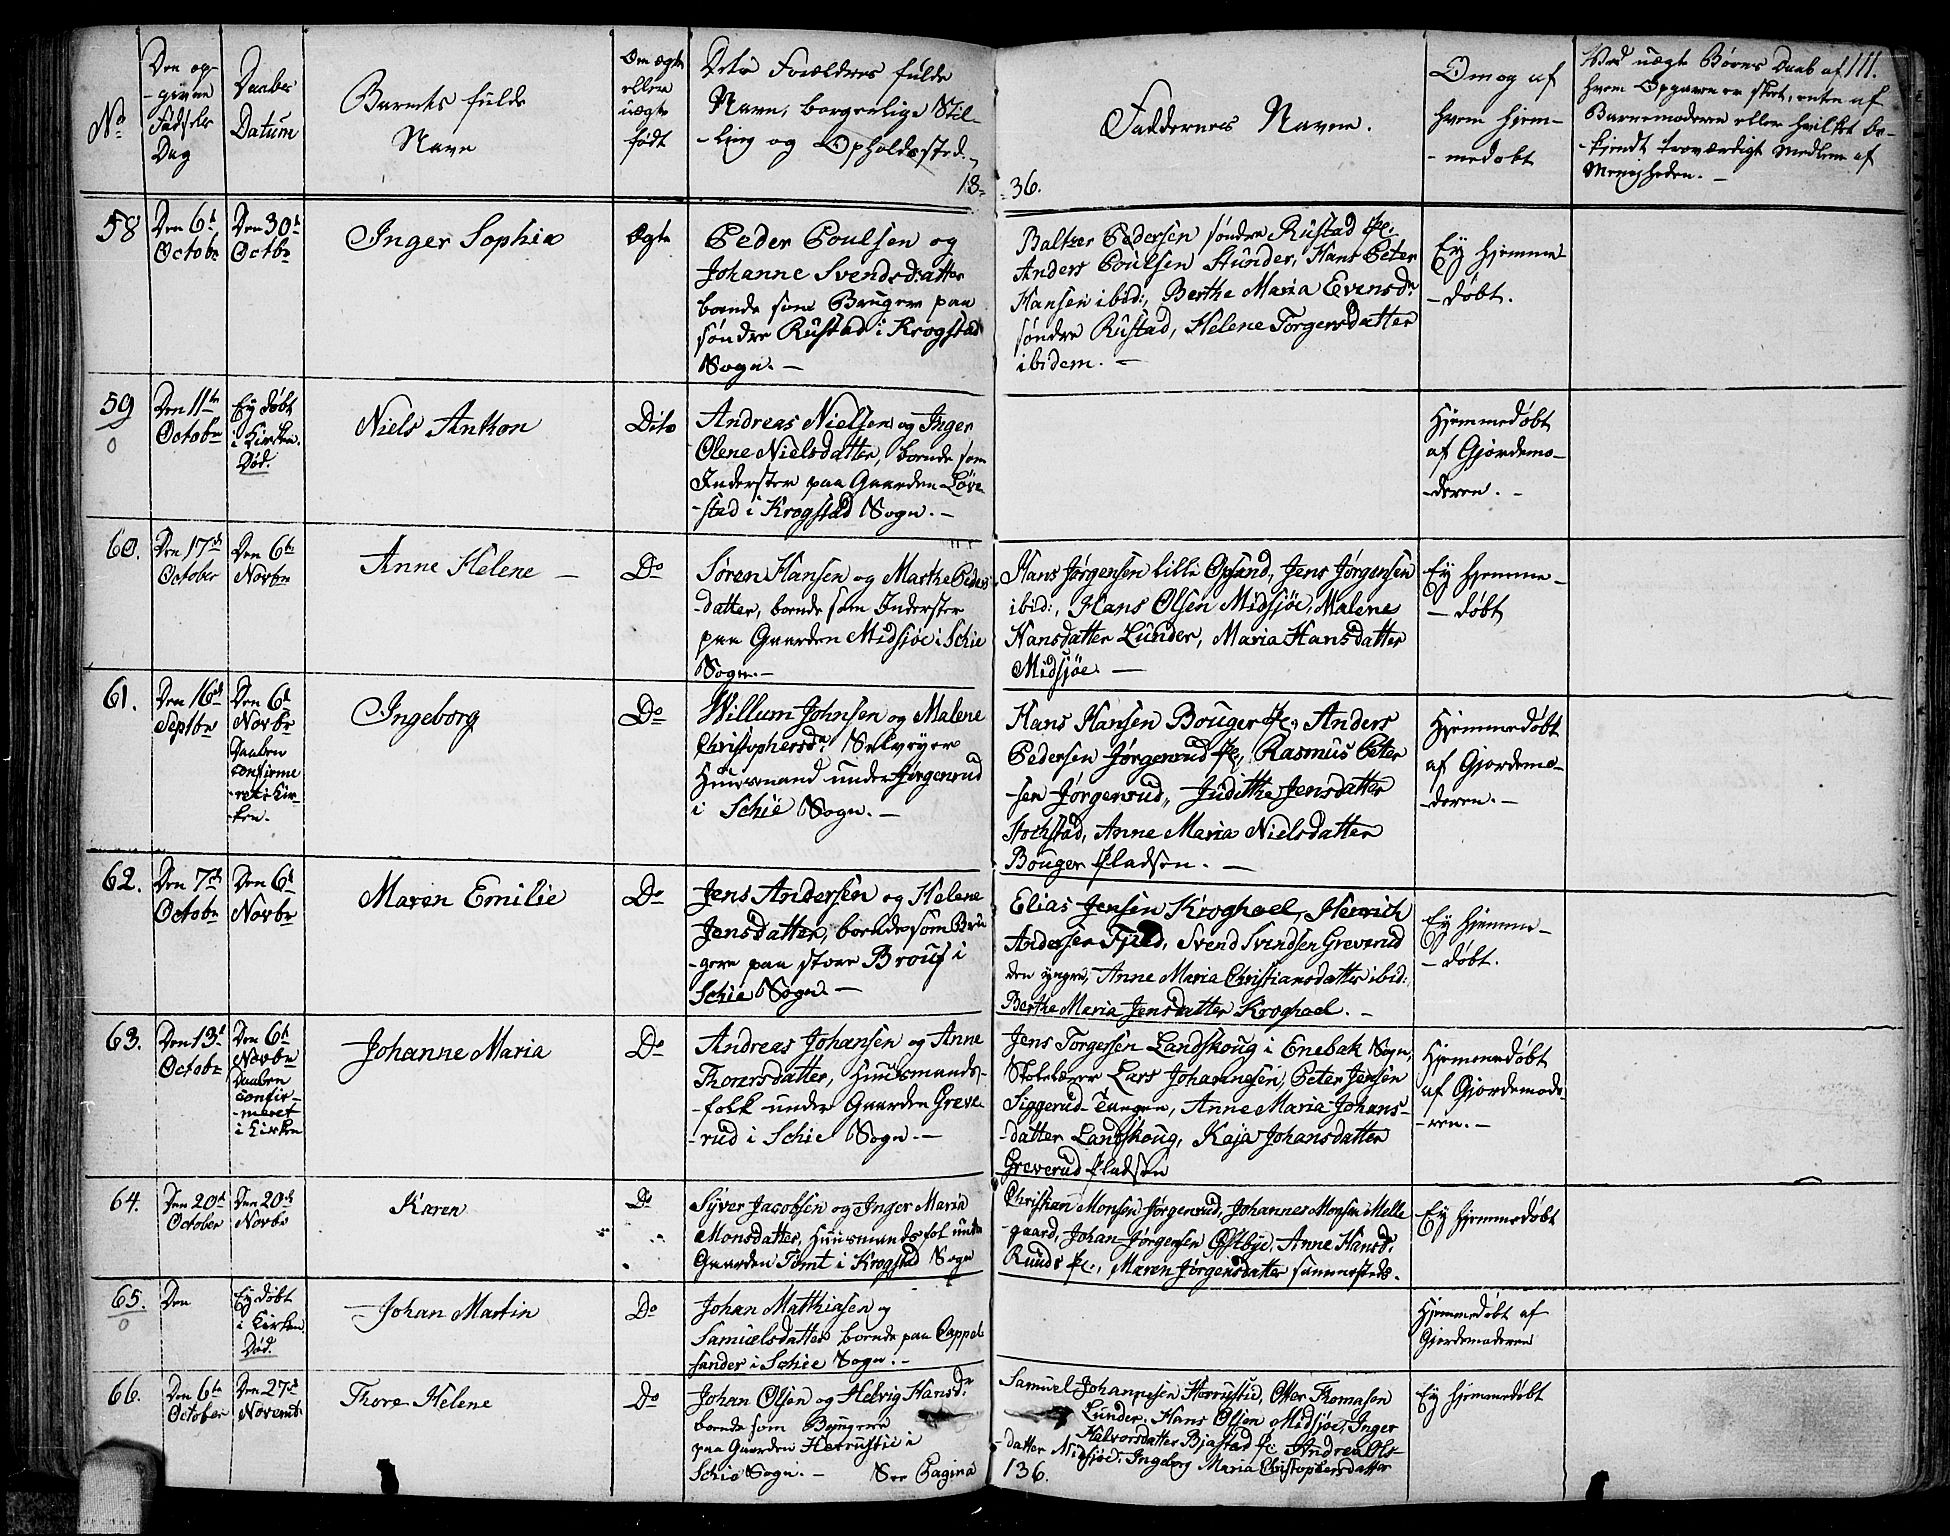 No
Den op-
-givne
Födsels
Dag
Daabes
Datum
Barnets fulde
Navn
Om ægte
eller
uægte
född
Dets Forældres fulde
Navn, borgerlige Stil-
-ling og Opholdssted.
18-
-36.
Faddernes Navne.
Om og af
hvem hjem-
-medöbt
Ved uægte Börns Daab af
hvem Opgaven er skeet, enten af
Barnemoderen eller hvilket be-
-kjendt troværdigt Medlem af
Menigheden. -
111.
58
Den 6te
Octobr
Den 30te
Octbr
Inger Sophie
Ægte
Peder Poulsen og
Johanne Svendsdatter
boende som Bruger paa
söndre Rustad i Krogstad
Sogn. -
Baltzer Pedersen söndre Rustad Pl:
Anders Poulsen Stunder, Hans Peter
Hansen ibid:, Berthe Maria Evensdr
söndre Rustad, Helene Torgersdatter
ibidem. -
Ey hjemme
-döbt.
59
0
Den 11te
Octobr
Ey döbt
i Kirken.
Död.
Niels Anthon
Dito
Andreas Nielsen og Inger
Olene Nielsdatter, boende som
Inderster paa Gaarden Löve
-stad i Krogstad Sogn. -
Hjemmedöbt
af Gjordemo-
-deren. -
60.
Den 17de
October
Den 6te
Novbr
Anne Helene -
Do
Sören Hansen og Marthe Peders
-datter, boende som Inderster
paa Gaarden Midsjöe i Schie
Sogn. -
Hans Jörgensen lille Opsand, Jens Jörgensen
ibid:, Hans Olsen Midsjöe, Malene
Hansdatter Lunder, Maria Hansdatter
Midsjöe. -
Ey hjemme-
-döbt
61.
Den 16de
Septbr
Den 6te
Novbr
Daaben
confirme
-ret i Kir-
-ken.
Ingeborg
Do
Willum Johnsen og Malene
Christophersdr. Selveyer
Huusmand under Jörgenrud
i Schie Sogn. -
Hans Hansen Bouger Pl:, Anders
Pedersen Jörgenrud Pl:, Rasmus Peter
-sen Jörgenrud, Judithe Jensdatter
Stokstad, Anne Maria Nielsdatter
Bouger Pladsen. -
Hjemmedöbt
af Gjordemo-
-deren. -
62.
Den 7de
Octobr
Den 6te
Novbr
Maren Emilie
Do
Jens Andersen og Helene
Jensdatter, boende som Bru
-gere paa store Brouf i
Schie Sogn. -
Elias Jensen Kroghoel, Henrich
Andersen Fjeld, Svend Svendsen Greverud
den yngre, Anne Maria Christiansdatter ibid:
Berthe Maria Jensdatter Kroghoel. -
Ey hjemme-
-döbt.
63.
Den 13de
Octobr
Den 6te
Novbr
Daaben
confir-
-meret
i Kirken
Johanne Maria
Do
Andreas Johansen og Anne
Thoresdatter, Huusmands-
-folk under Gaarden Greve
-rud i Schie Sogn. -
Jens Torgersen Landskoug i Enebak Sogn,
Skolelærer Lars Johannesen, Peter Jensen
Siggerud-Tangen, Anne Maria Johans-
-datter Landskoug, Kaja Johansdatter
Greverud Pladsen
Hjemmedöbt
af Gjordemode-
-ren. -
64.
Den 20de
October
Den 20de
Novbr
Karen
Do
Syver Jacobsen og Inger Maria
Monsdatter, Huusmandsfol under
Gaarden Tomt i Krogstad Sogn
Christian Monsen Jörgenrud, Johannes Monsen Melle
-gaard, Johan Jörgensen Östbye, Anne Hansd:
Ruuds Pl:, Maren Jörgensdatter sammesteds.
Ey hjemmedöbt
65.
0
Den
Ey döbt
i Kirken
Död.
Johan Martin
Do
Johan Matthiasen og
Samuelsdatter boende paa Cappel
sander i Schie Sogn. -
Hjemmedöbt af
Gjordemoderen
66.
Den 6te
October
Den 27de
Novemb.
Thore Helene
Do
Johan Olsen og Helvig Hansdr
boende som Bÿugere
paa Gaarden Herrustie i
Schie Sogn. - See Pagina
136.
Samuel Johannesen Herrustie, Otter Thomasen
Lunder, Hans Olsen Midsjöe, Inger
Halvorsdatter Bjastad Pl: Andrea Ols-
-datter Midsjöe, Ingeborg Maria Christophersdatter
Ey hjemmedöbt